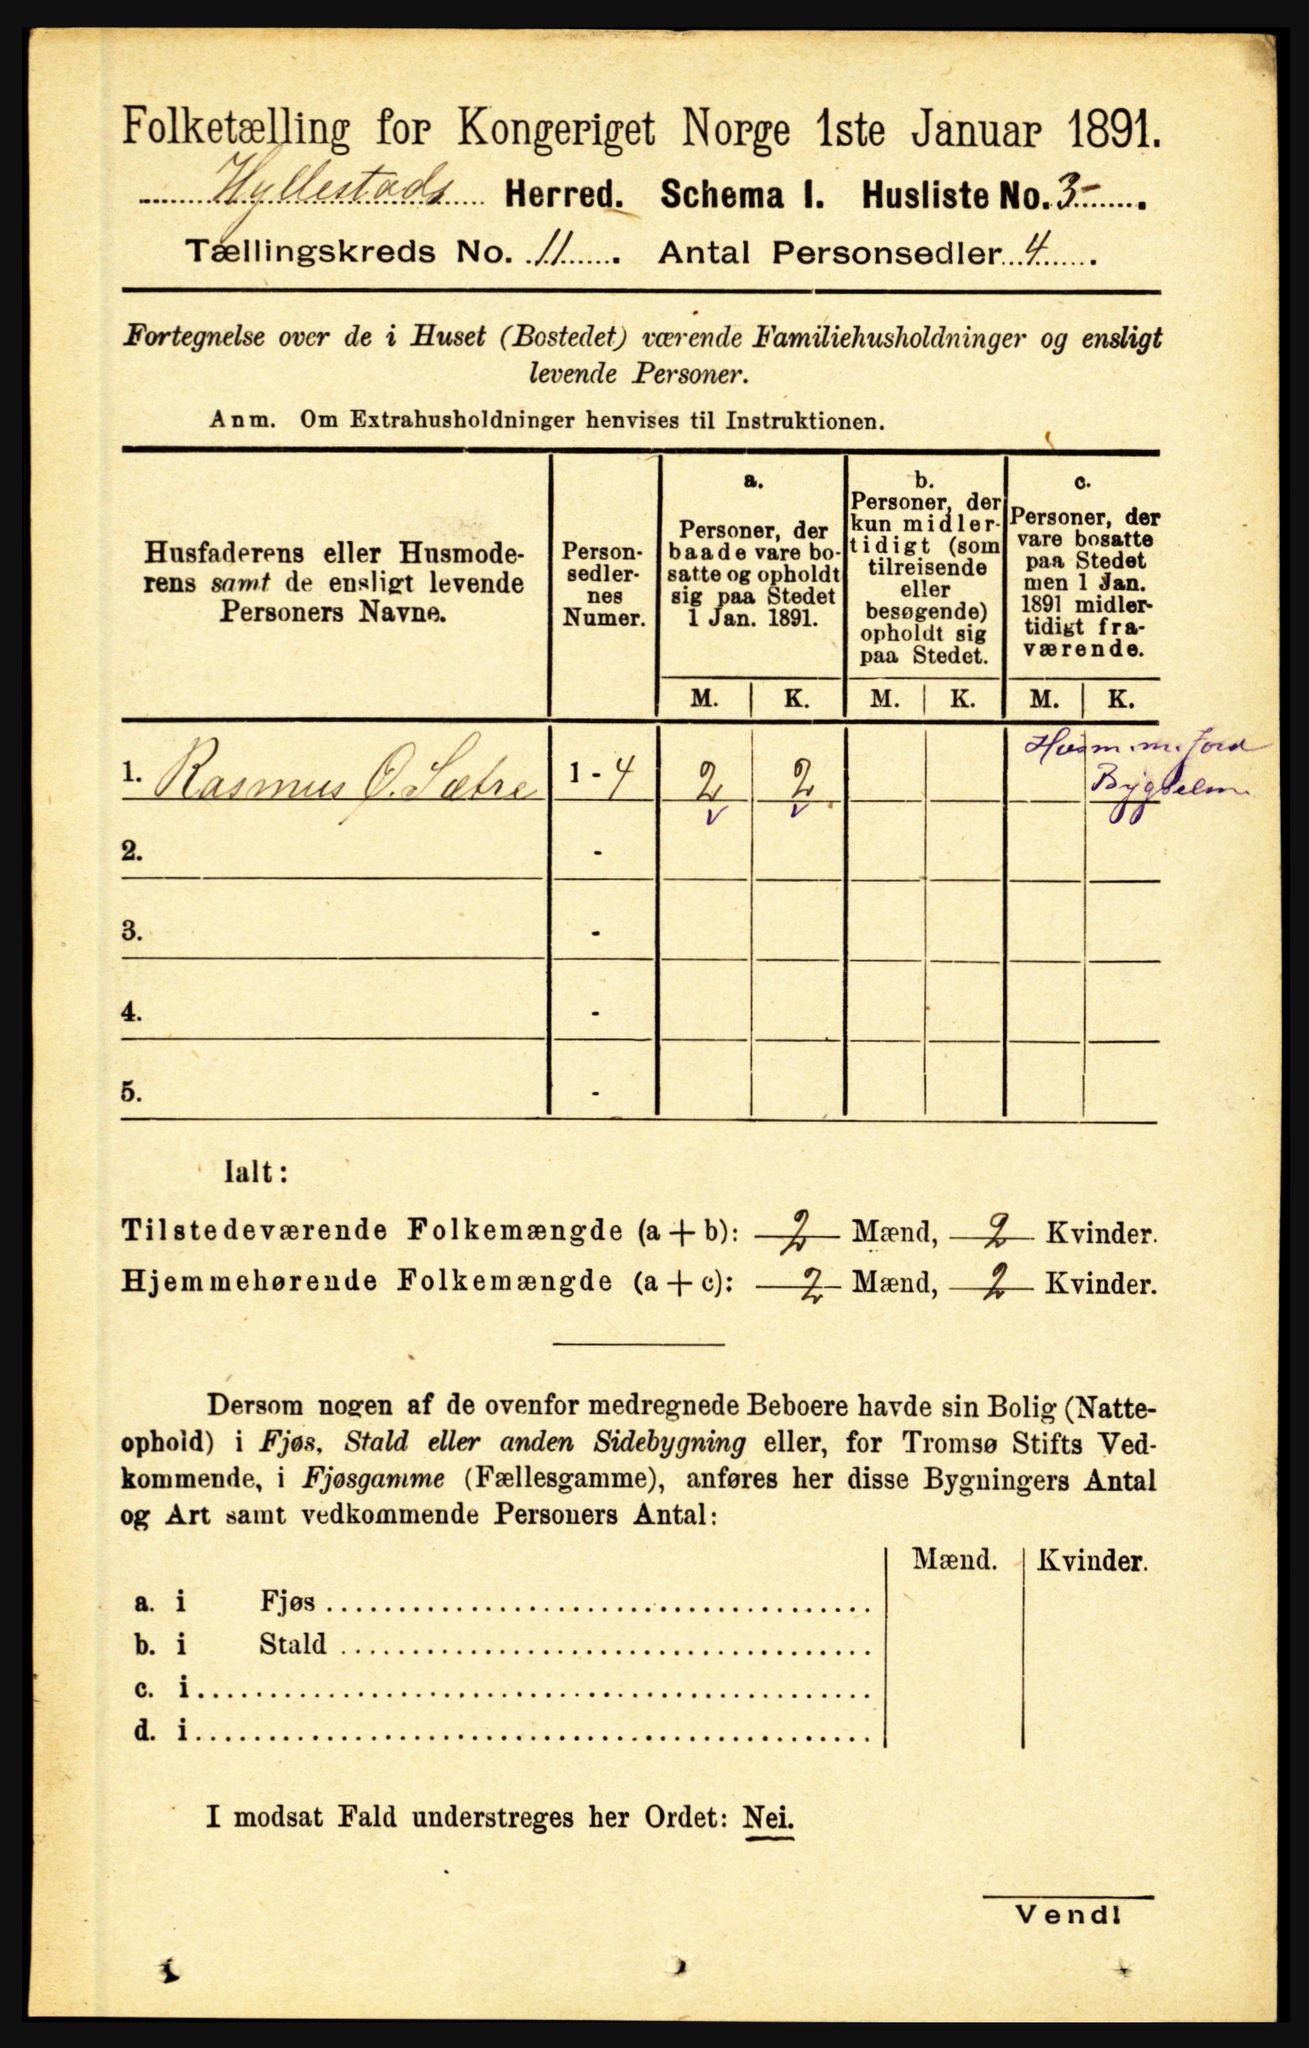 Folketælling for Kongeriget Norge 1ste Januar 1891.
Hyllestads Herred. Schema I. Husliste No. 3
Tællingskreds No. 11. Antal Personsedler 4.
Fortegnelse over de i Huset (Bostedet) værende Familiehusholdninger og ensligt
levende Personer.
Anm. Om Extrahusholdninger henvises til Instruktionen.
Husfaderens eller Husmode-
rens samt de ensligt levende
Personers Navne.
Person-
sedler-
nes
Numer.
a.
Personer, der
baade vare bo-
satte og opholdt
sig paa Stedet
1 Jan. 1891.
b.
Personer, der
kun midler-
tidigt (som
tilreisende
eller
besøgende)
opholdt sig
paa Stedet.
c.
Personer, der
vare bosatte
paa Stedet
men 1 Jan.
1891 midler-
tidigt fra-
værende.
M. K. M. K. M. K.
1. Rasmus O. Sætre 1 - 4 2 2
Husm. m. Jord
2. -
3. -
4. -
5. -
Ialt:
Tilstedeværende Folkemængde (a + b): 2 Mænd, 2 Kvinder.
Hjemmehørende Folkemængde (a + c): 2 Mænd, 2 Kvinder.
Dersom nogen af de ovenfor medregnede Beboere havde sin Bolig (Natte-
ophold) i Fjøs, Stald eller anden Sidebygning eller, for Tromsø Stifts Ved-
kommende, i Fjøsgamme (Fællesgamme), anføres her disse Bygningers Antal
og Art samt vedkommende Personers Antal:
Mænd. Kvinder.
a. i Fjøs
b. i Stald
c. i
d. i
I modsat Fald understreges her Ordet: Nei.
Vend!